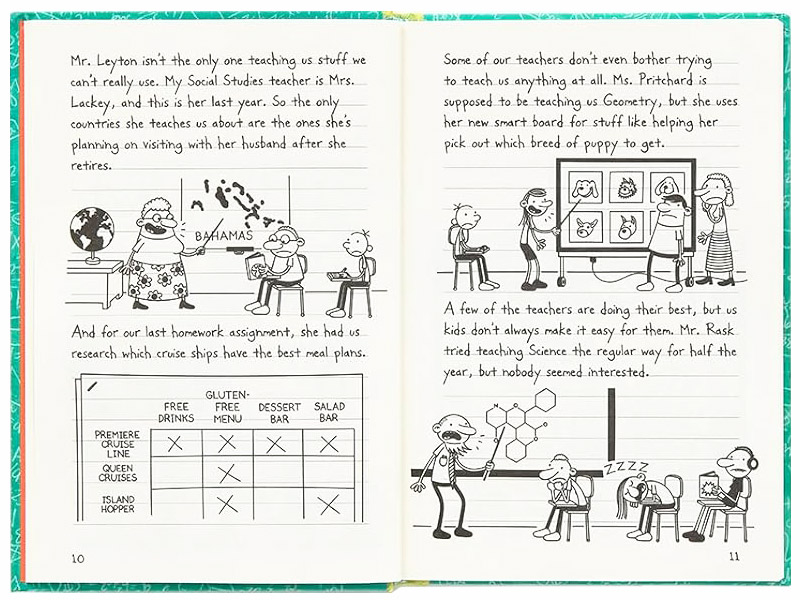 Mr. Leyton isn't the only one teaching us stuff we
can't really use. My Social Studies teacher is Mrs.
Lackey, and this is her last year. So the only
countries she teaches us about are the ones she's
planning on visiting with her husband after she
retires.
BAHAMAS
And for our last homework assignment, she had us
research which cruise ships have the best meal plans.
FREE DRINKS
GLUTEN-FREE MENU
DESSERT BAR
SALAD BAR
PREMIERE CRUISE LINE
X X X X
QUEEN CRUISES
X
ISLAND HOPPER
X X
10
Some of our teachers don't even bother trying
to teach us anything at all. Ms. Pritchard is
supposed to be teaching us Geometry, but she uses
her new smart board for stuff like helping her
pick out which breed of puppy to get.
A few of the teachers are doing their best, but us
kids don't always make it easy for them. Mr. Rask
tried teaching Science the regular way for half the
year, but nobody seemed interested.
N
O
O
O
ZZZZ
11